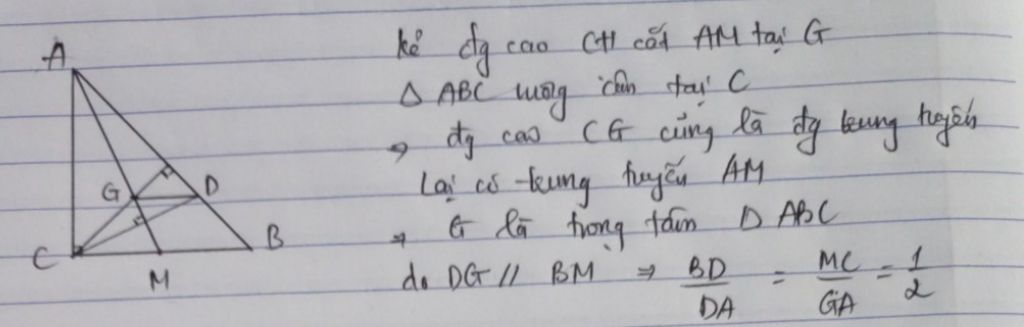 kẻ đg cao CH cắt AM tại G
Δ ABC vuông cân tại C
⇒ đg cao CG cũng là đg trung tuyến
Lại có trung tuyến AM
⇒ G là trọng tâm Δ ABC
do DG // BM ⇒ BD/DA = MC/GA = 1/2
A
G
D
C
B
M